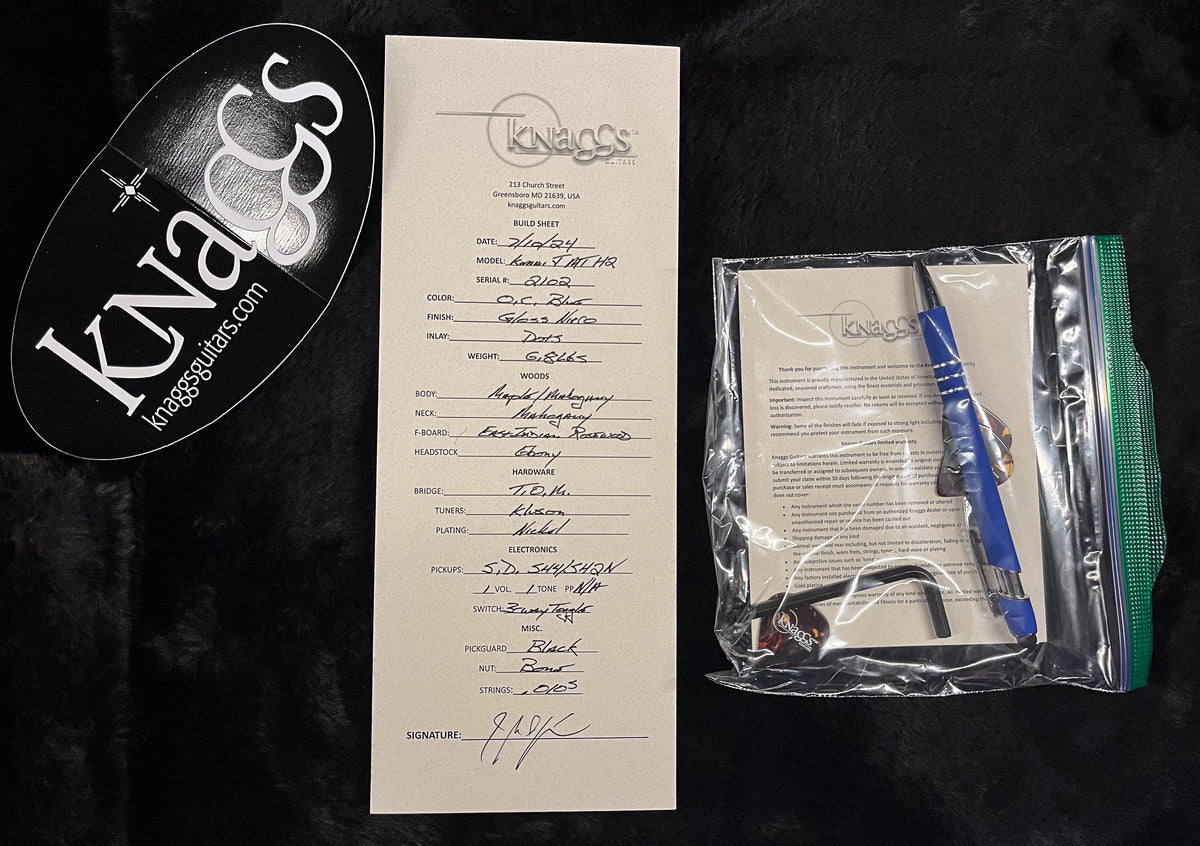 KNaGGs
knaggsguitars.com
KNaGGs™
GUITARS
213 Church Street
Greensboro MD 21639, USA
knaggsguitars.com
BUILD SHEET
DATE: 7/10/24
MODEL: T HQ
SERIAL #: 2102
COLOR: O.C. Blue
FINISH: Gloss Nitro
INLAY: Dots
WEIGHT: 6.8 Lbs
WOODS
BODY: Maple/Mahogany
NECK: Mahogany
F-BOARD: East Indian Rosewood
HEADSTOCK Ebony
HARDWARE
BRIDGE: T.O.M.
TUNERS: Kluson
PLATING: Nickel
ELECTRONICS
PICKUPS: S.D. SH4/SH2N
1 VOL. 1 TONE PP N/A
SWITCH: 3-way Toggle
MISC.
PICKGUARD Black
NUT: Bone
STRINGS: .010s
SIGNATURE:
KNaGGs
Thank you for purchasing this instrument and welcome to the family
This instrument is proudly manufactured in the United States of America
dedicated, seasoned craftsmen, using the finest materials and processes
Important: Inspect this instrument carefully as soon as received. If any
loss is discovered, please notify reseller. No returns will be accepted
authorization.
Warning: Some of the finishes will fade if exposed to strong light including
recommend you protect your instrument from such exposure.
Knaggs Guitars limited warranty
Knaggs Guitars warrants this instrument to be free from defects in
subject to limitations herein. Limited warranty is extended to original
be transferred or assigned to subsequent owners. In order to validate
submit your claim within 30 days following the original date of purchase
purchase or sales receipt must accompany all requests for warranty
does not cover:
• Any instrument which the serial number has been removed or altered
• Any instrument not purchased from an authorized Knaggs dealer or upon
unauthorized repair or service has been carried out
• Any instrument that has been damaged due to an accident, negligence or
• Shipping damage of any kind
• Normal wear and tear including, but not limited to discoloration, fading or
the original finish, worn frets, strings, tuners, hard ware or plating
• Any subjective issues such as tone
• Any instrument that has been subjected to extreme
• Any factory installed
• Gold plating
express warranty of any kind
of merchantability and fitness for a particular purpose, exceeding the
KNaGGs